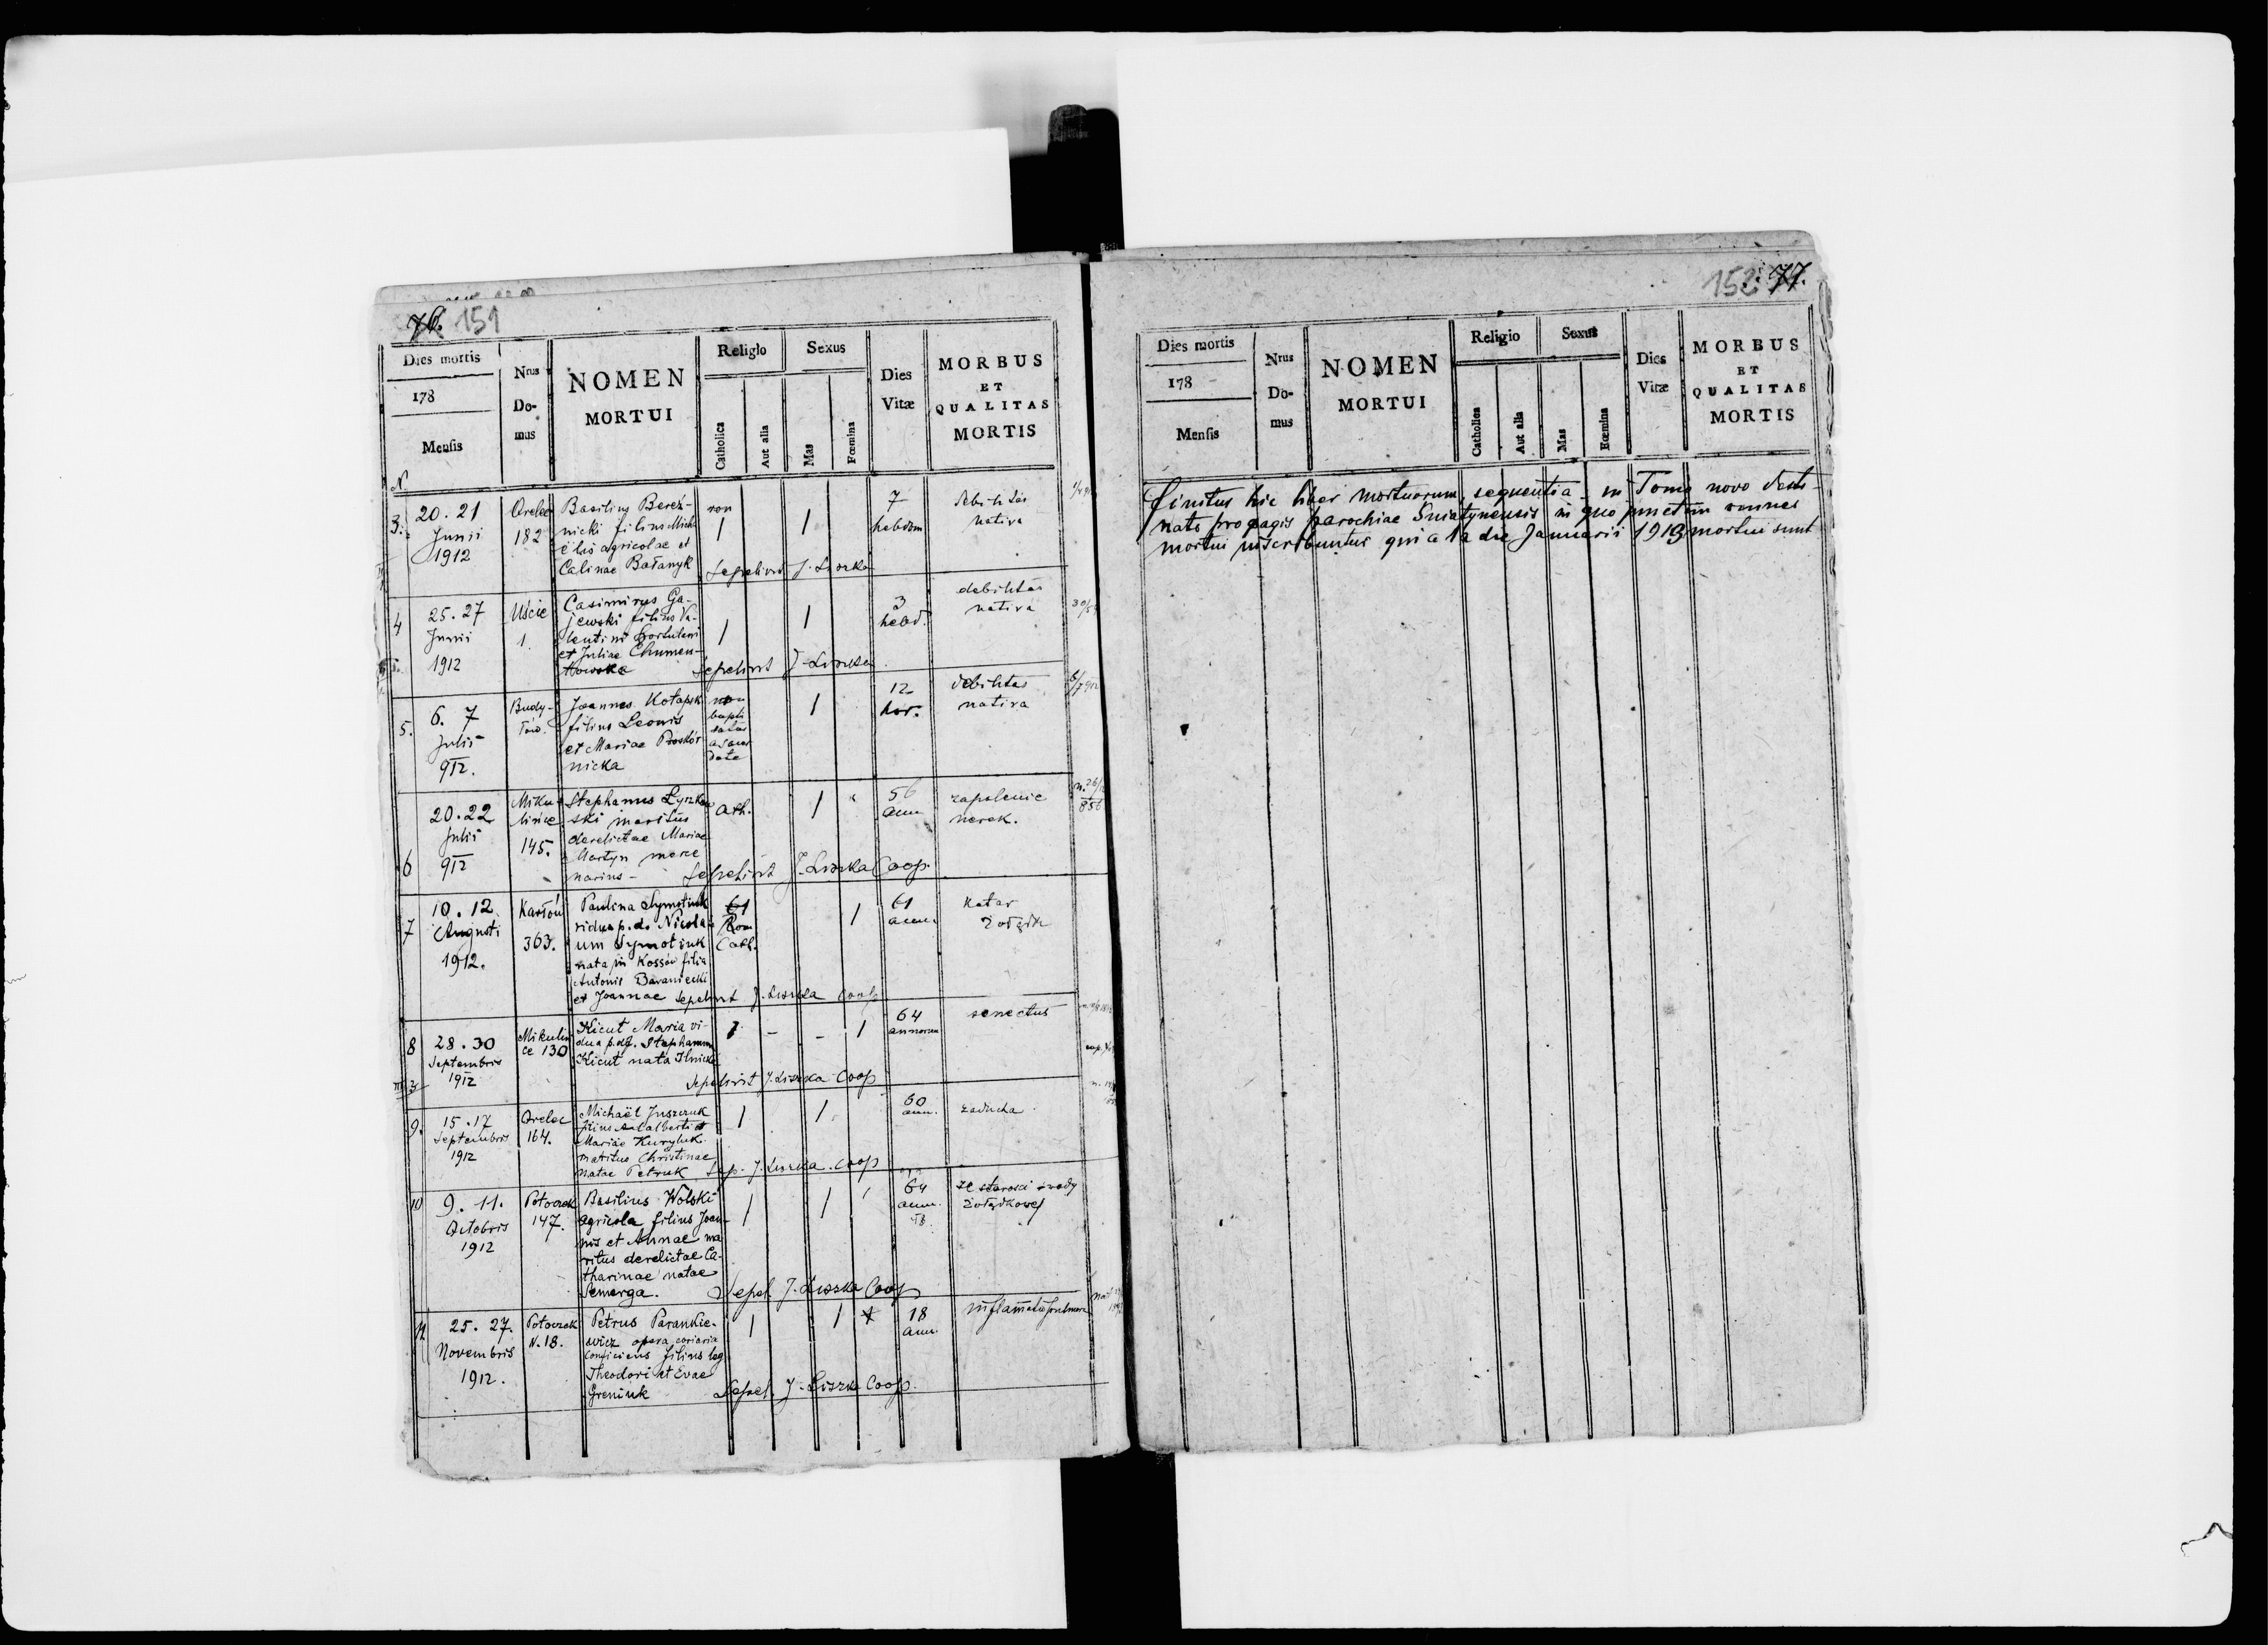 76. 151
Dies mortis
178
Mensis
Nrus
Do-
mus
NOMEN
MORTUI
Religio
Catholica
Aut alia
Sexus
Mas
Fœmina
Dies
Vitæ
MORBUS
ET
QUALITAS
MORTIS
N.
3.
20. 21
Junii
1912
Orelec
182
Basilius Bereź-
nicki filius Micha
ëlis agricolae et
Calinae Bařanyk
rom
1
1
7
hebdom
debilitas
nativa
Sepelivit J. Liszka
4
25. 27
Junii
1912
Uście
1.
Casimirus Ga-
jewski filius Va-
lentini hortulani
et Juliae Chumen-
towska
1
1
3
hebd.
debilitas
nativa
Sepelivit J. Liszka
5.
6. 7
Julii
912.
Budy-
łów.
Joannes Kotapsk
filius Leonis
et Mariae Proskór
nicka
non
bapti
satus
1
12
hor.
debilitas
nativa
6
20. 22
Julii
912
Miku-
lińce
145.
Stephanus Łyszkow
ski maritus
derelictae Mariae
Martyn merce
narius -
Cath.
1
56
ann
zapalenie
nerek.
Sepelivit J. Liszka Coop.
7
10. 12.
Augusti
1912.
Karłów
363.
Paulina Symotiuk
vidua p.d. Nicola-
um Symotiuk
nata in Kossów filia
Antonii Baraniecki
et Joannae
Rom
Cath.
1
61
ann.
Katar
żołądk
Sepelivit J. Liszka Coop
8
28. 30
Septembris
1912
Mikulin
ce 130
Kicut Maria vi-
dua p.df. Stephanum
Kicut nata Ilnicka
1
-
-
1
64
annorum
senectus
Sepelivit J. Liszka Coop
9.
15. 17
Septembris
1912
Orelec
164.
Michaël Juszczuk
filius Adalberti et
Mariae Kuryluk
maritus Christinae
natae Petruk
1
1
60
ann.
zaducha
Sep. J. Liszka. Coop
10
9. 11.
Octobris
1912
Potoczek
147.
Basilius Wolski
agricola filius Joan-
nis et Annae ma
ritus derelictae Ca-
tharinae natae
Semerga.
1
1
64
ann.
ze starosci i wady
żołądkowej
Sepel. J. Liszka Coop
11
25. 27.
Novembris
1912.
Potoczek
N. 18.
Petrus Parankie-
wicz opera coriaria
conficiens filius leg
Theodori et Evae
Greniuk
1
1
18
ann.
inflamatio pulmon
Sepel. J. Liszka Coop.
152. 77.
Dies mortis
178
Mensis
Nrus
Do-
mus
NOMEN
MORTUI
Religio
Catholica
Aut alia
Sexus
Mas
Fœmina
Dies
Vitæ
MORBUS
ET
QUALITAS
MORTIS
finitus hic liber mortuorum, sequentia in Tomo novo desti-
nato pro pagis parochiae Sniatynensis in quo punctim omnes
mortui inscribuntur qui a 1a die Januarii 1913 mortui sunt